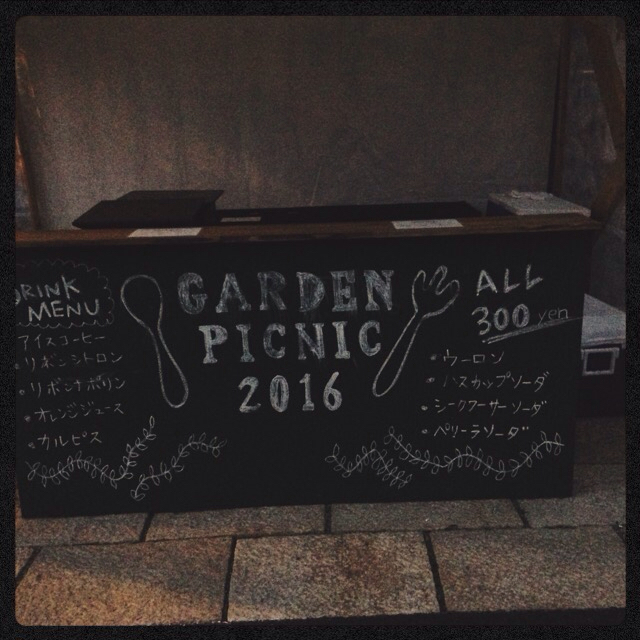 DRINK
MENU
アイスコーヒー
・リボンシトロン
・リボンナポリン
・オレンジジュース
・カルピス
GARDEN
PICNIC
2016
ALL
300 yen
・ウーロン
・ハスカップソーダ
・シークワーサーソーダ
・ペリーラソーダ